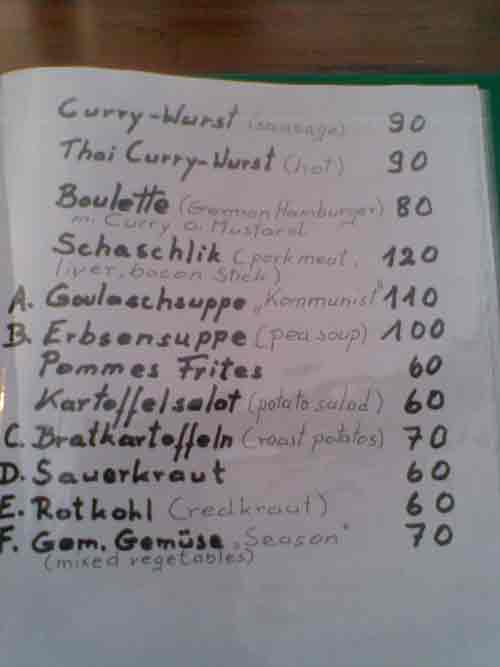 Curry-Wurst (sausage) 90
Thai Curry-Wurst (hot) 90
Boulette (German Hamburger) 80
m. Curry o. Mustard
Schaschlik (porkmeat, 120
liver, bacon stick)
A. Goulaschsuppe „Kommunist" 110
B. Erbsensuppe (pea soup) 100
Pommes Frites 60
Kartoffelsalat (potato salad) 60
C. Bratkartoffeln (roast potatos) 70
D. Sauerkraut 60
E. Rotkohl (redkraut) 60
F. Gem. Gemüse „Season" 70
(mixed vegetables)